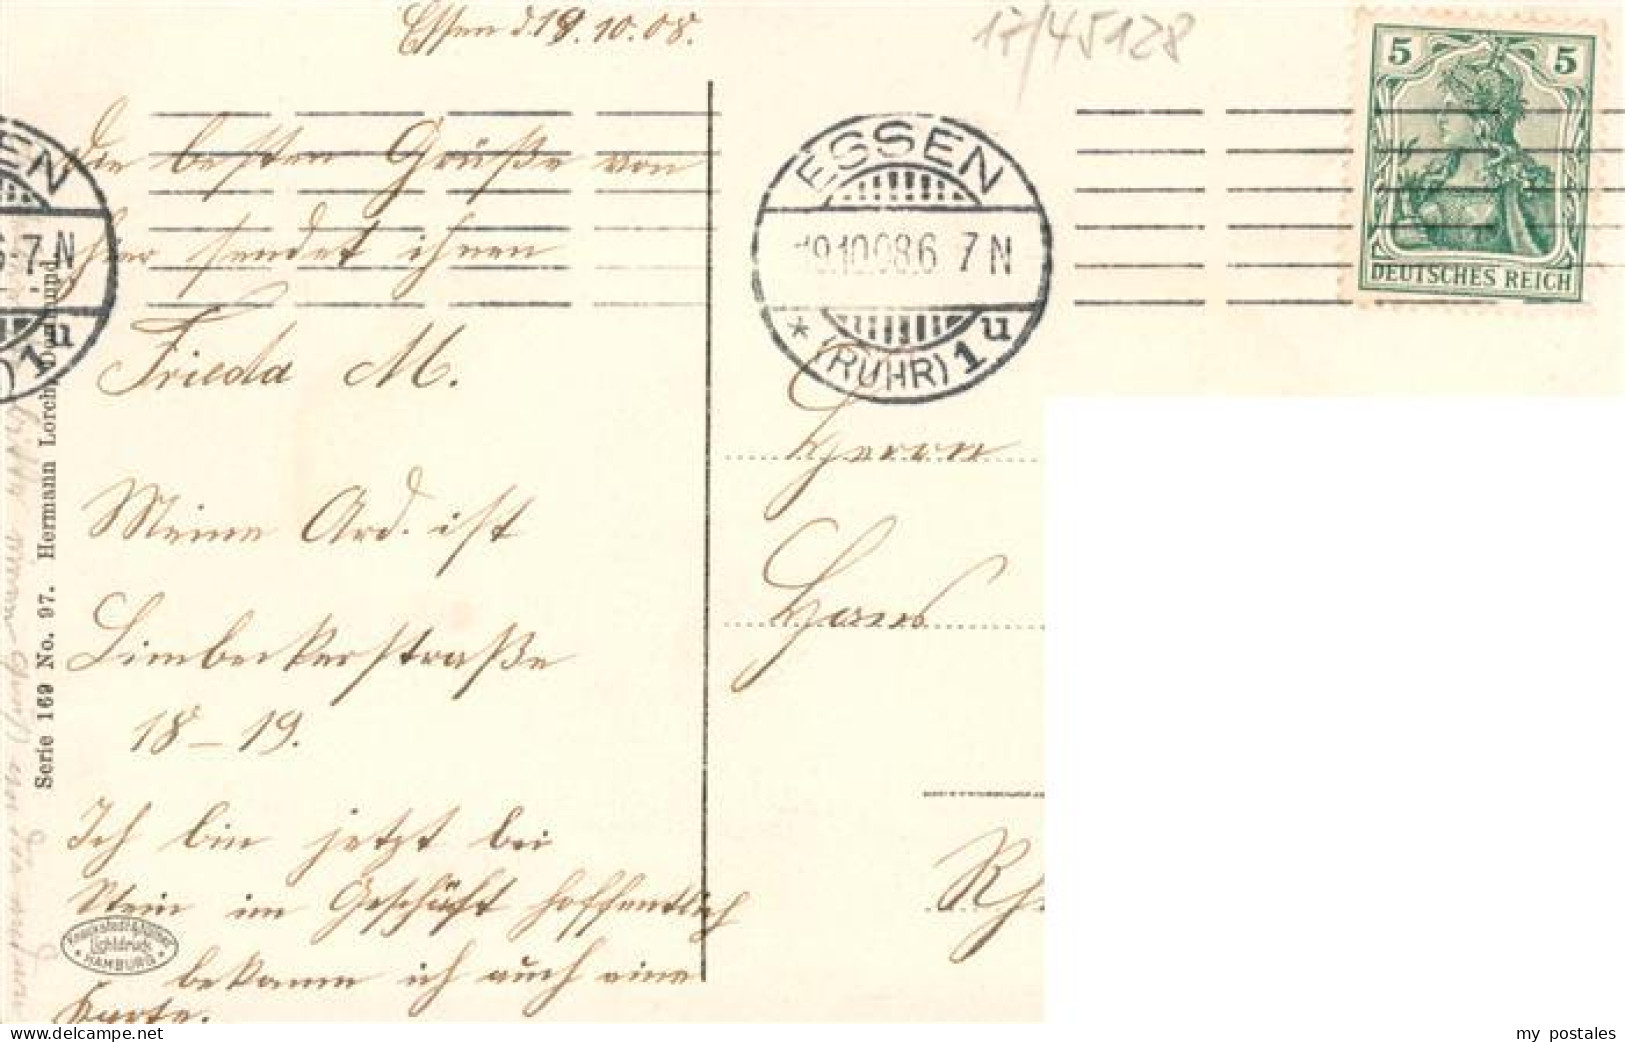 Essen d. 19.10.08.
17/45128
Die besten Grüße von
hier sendet ihnen
Frieda M.
Meine Ard. ist
Limbeckerstraße
18-19.
Ich bin jetzt bei
Stein im Geschäft hoffentlich
bekomm ich auch eine
Karte.
Serie 169 No. 97. Hermann Lorch, Dortmund
Lichtdruck
HAMBURG
EN
6 7 N
1 u
ESSEN
19.10.08.6 7 N
* (RUHR) 1 u
5 5
DEUTSCHES REICH
Herrn
Hans
Rh
my postales